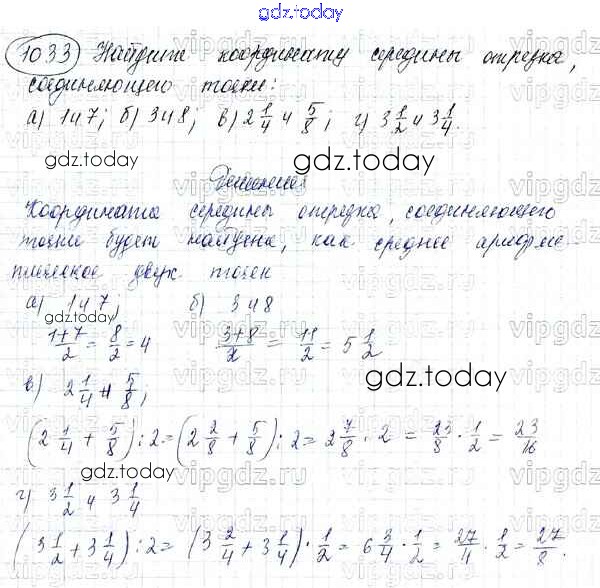 gdz.today
1033 Найдите координату середины отрезка,
соединяющего точки:
а) 1 и 7; б) 3 и 8; в) 2 1/4 и 5/8; г) 3 1/2 и 3 1/4.
gdz.today gdz.today
Решение
Координата середины отрезка, соединяющего
точки будет найдена, как среднее арифме-
тическое двух точек
а) 1 и 7; б) 3 и 8
(1+7)/2 = 8/2 = 4 (3+8)/2 = 11/2 = 5 1/2
в) 2 1/4 и 5/8;
gdz.today
(2 1/4 + 5/8) : 2 = (2 2/8 + 5/8) : 2 = 2 7/8 · 2 = 23/8 · 1/2 = 23/16
gdz.today
г) 3 1/2 и 3 1/4
(3 1/2 + 3 1/4) : 2 = (3 2/4 + 3 1/4) · 1/2 = 6 3/4 · 1/2 = 27/4 · 1/2 = 27/8.
gdz.today